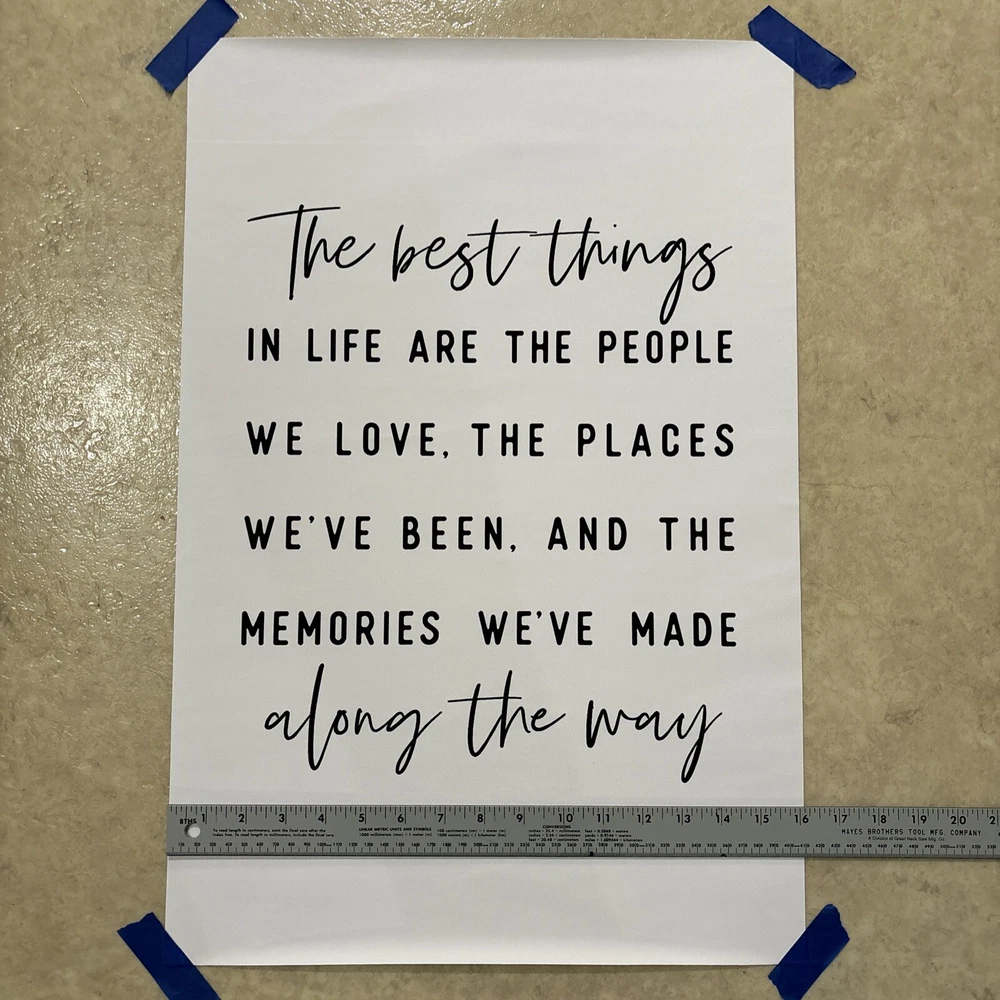 The best things
IN LIFE ARE THE PEOPLE
WE LOVE, THE PLACES
WE'VE BEEN, AND THE
MEMORIES WE'VE MADE
along the way
8THS 1 2 3 4 5 6 7 8 9 10 11 12 13 14 15 16 17 18 19 20
LINEAR METRIC UNITS AND SYMBOLS
CONVERSIONS
MAYES BROTHERS TOOL MFG. COMPANY